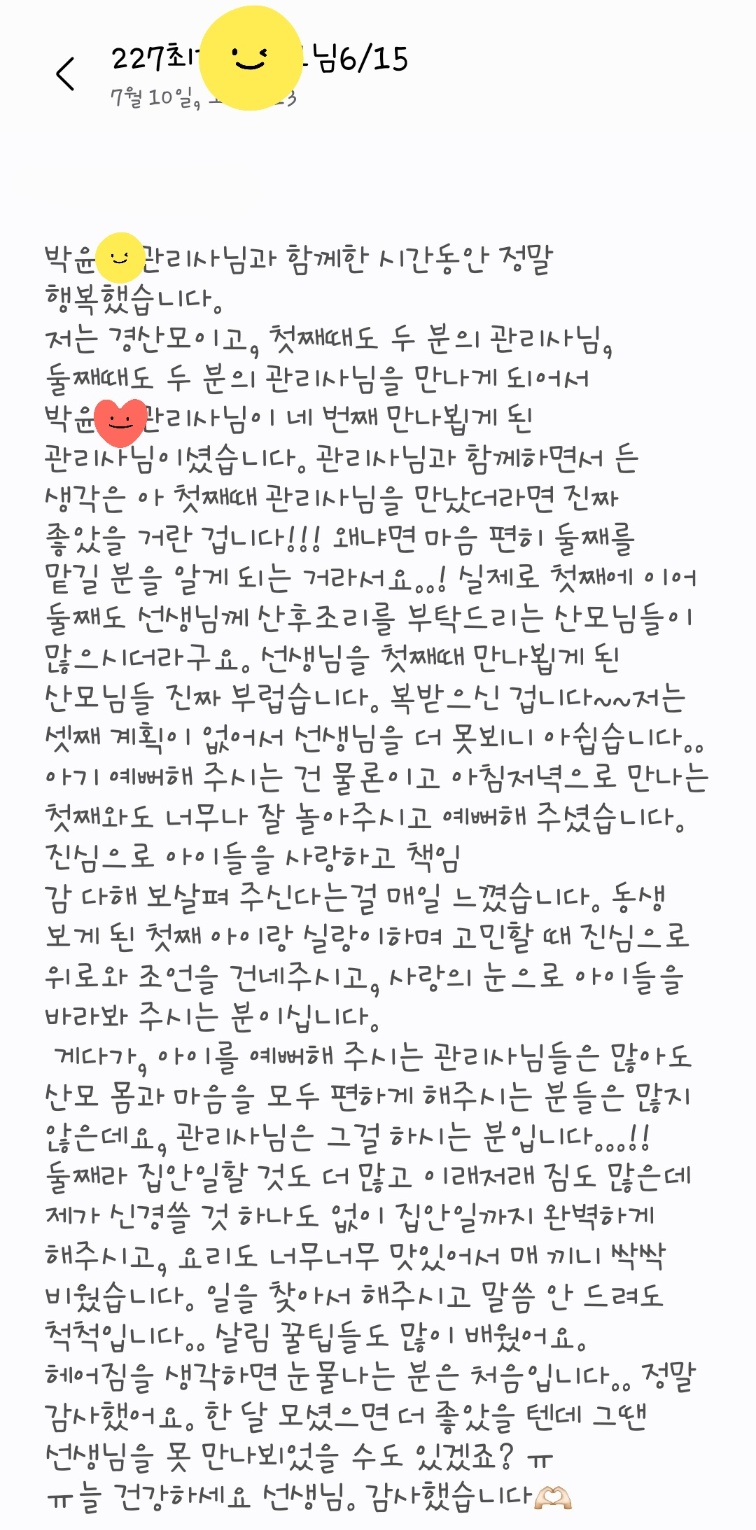 227최 님6/15
7월 10일, 3
박윤 관리사님과 함께한 시간동안 정말
행복했습니다.
저는 경산모이고, 첫째때도 두 분의 관리사님,
둘째때도 두 분의 관리사님을 만나게 되어서
박윤 관리사님이 네 번째 만나뵙게 된
관리사님이셨습니다. 관리사님과 함께하면서 든
생각은 아 첫째때 관리사님을 만났더라면 진짜
좋았을 거란 겁니다!!! 왜냐면 마음 편히 둘째를
맡길 분을 알게 되는 거라서요..! 실제로 첫째에 이어
둘째도 선생님께 산후조리를 부탁드리는 산모님들이
많으시더라구요. 선생님을 첫째때 만나뵙게 된
산모님들 진짜 부럽습니다. 복받으신 겁니다~~저는
셋째 계획이 없어서 선생님을 더 못뵈니 아쉽습니다..
아기 예뻐해 주시는 건 물론이고 아침저녁으로 만나는
첫째와도 너무나 잘 놀아주시고 예뻐해 주셨습니다.
진심으로 아이들을 사랑하고 책임
감 다해 보살펴 주신다는걸 매일 느꼈습니다. 동생
보게 된 첫째 아이랑 실랑이하며 고민할 때 진심으로
위로와 조언을 건네주시고, 사랑의 눈으로 아이들을
바라봐 주시는 분이십니다.
게다가, 아이를 예뻐해 주시는 관리사님들은 많아도
산모 몸과 마음을 모두 편하게 해주시는 분들은 많지
않은데요, 관리사님은 그걸 하시는 분입니다...!!
둘째라 집안일할 것도 더 많고 이래저래 짐도 많은데
제가 신경쓸 것 하나도 없이 집안일까지 완벽하게
해주시고, 요리도 너무너무 맛있어서 매 끼니 싹싹
비웠습니다. 일을 찾아서 해주시고 말씀 안 드려도
척척입니다.. 살림 꿀팁들도 많이 배웠어요.
헤어짐을 생각하면 눈물나는 분은 처음입니다.. 정말
감사했어요. 한 달 모셨으면 더 좋았을 텐데 그땐
선생님을 못 만나뵈었을 수도 있겠죠? ㅠ
ㅠ늘 건강하세요 선생님. 감사했습니다🫶🏻